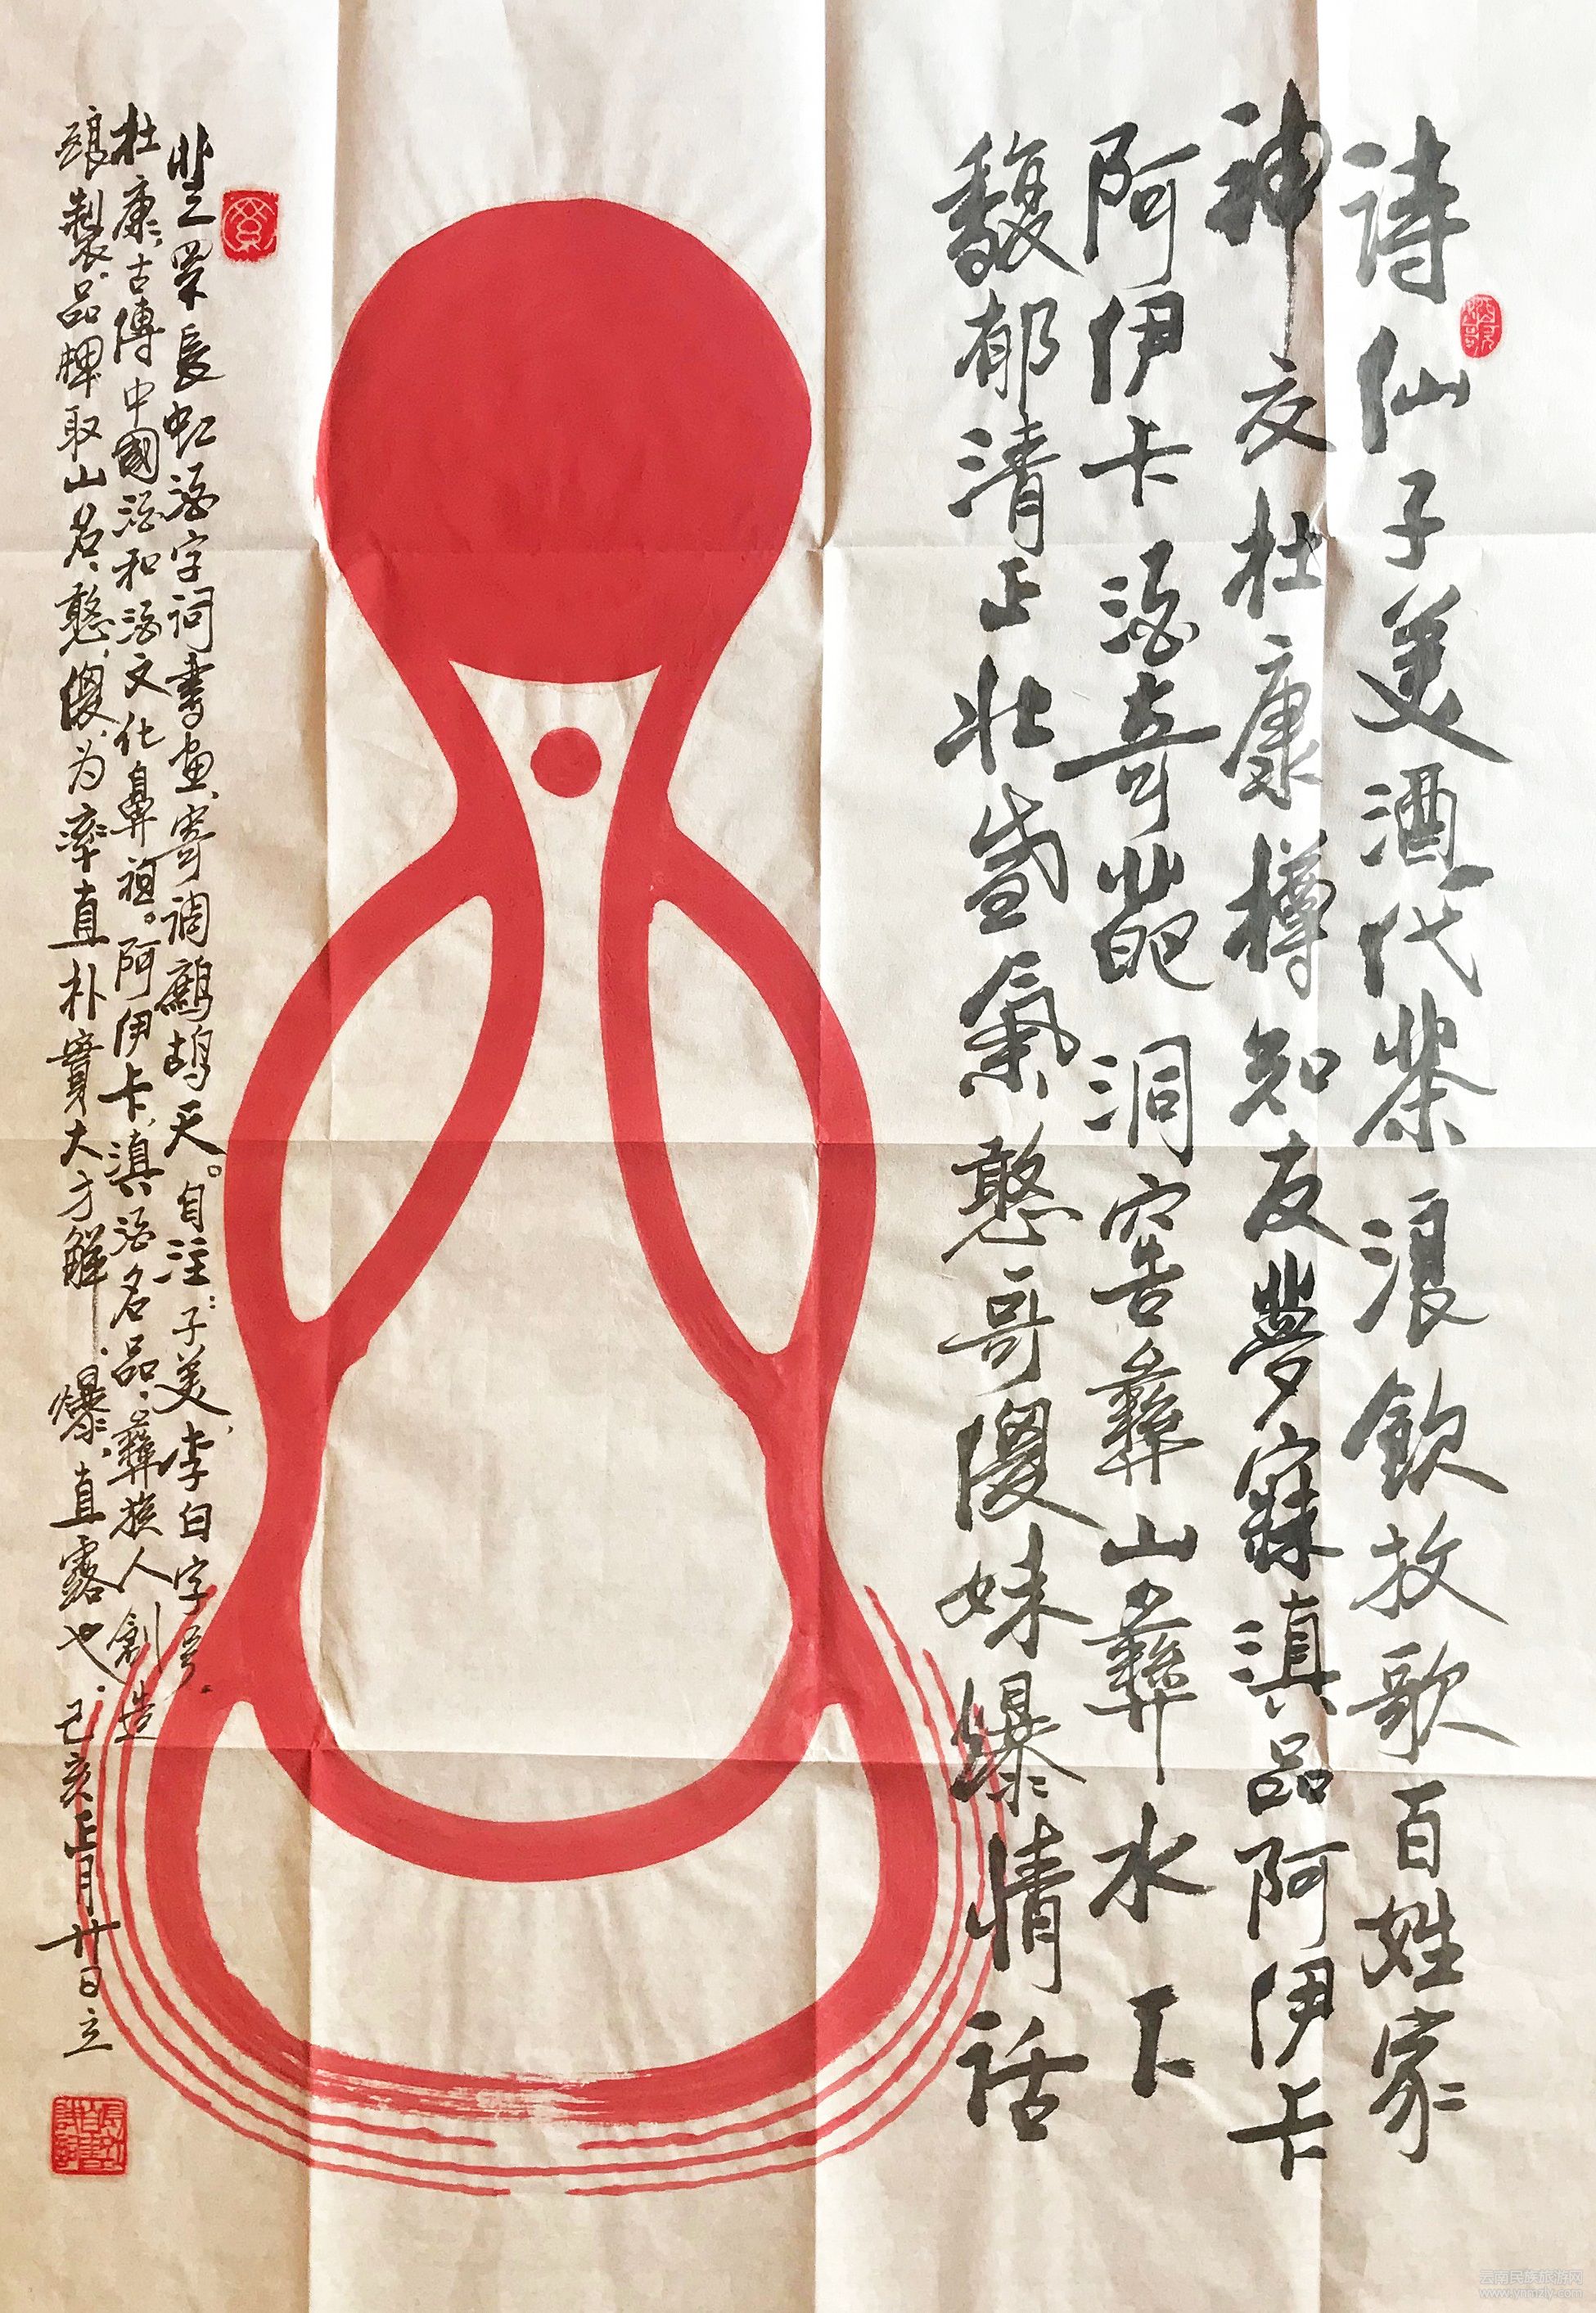 诗仙子美酒代茶浪飲放歌百姓家
神交杜康樽知友夢寐滇品阿伊卡
阿伊卡酒奇葩洞窖彝山彝水下
馥郁清正壮氣憨哥傻妹爆情话
長虹酒字词書画寄调鷓鸪天。自注：子美，李白字号。
杜康，古傳中國酒和酒文化鼻祖。阿伊卡，滇酒名品，彝族人創造
釀製。品牌取山名。憨、傻，为率直朴實大方解。爆，直露也。己亥正月廿日立
云南民族旅游网
www.ynmzly.com